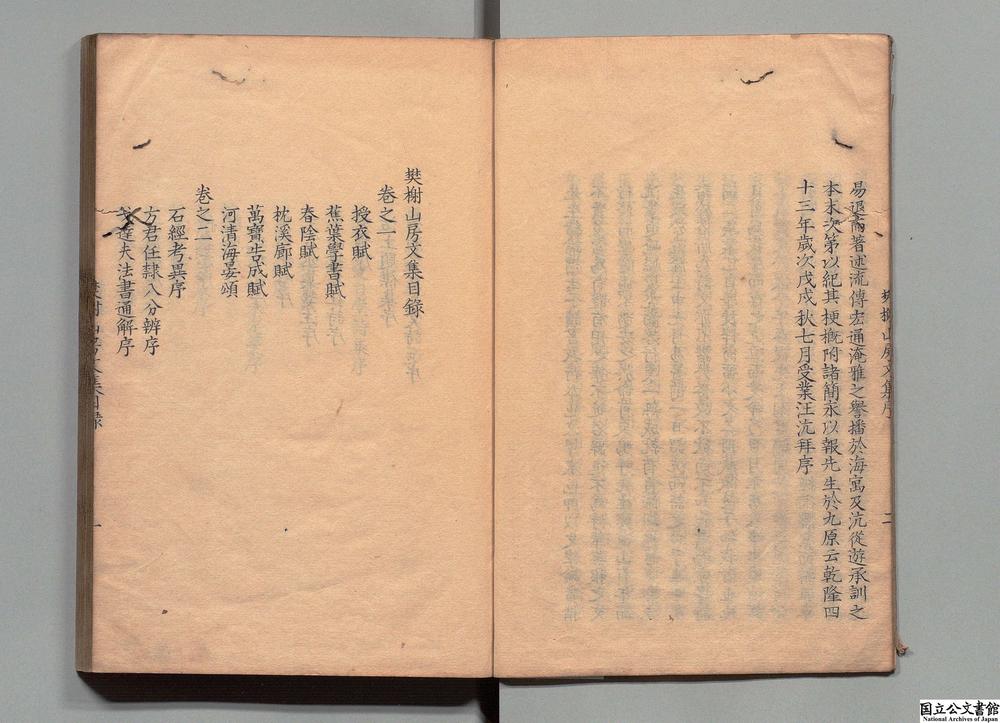 易退而著述流傳宏通淹雅之譽播於海寓及沆從遊承訓之
本末次第以紀其梗概附諸簡末以報先生於九原云乾隆四
十三年歲次戊戌秋七月受業汪沆拜序
樊榭山房文集序
二
樊榭山房文集目錄
卷之一
授衣賦
蕉葉學書賦
春陰賦
枕溪廊賦
萬寶告成賦
河清海晏頌
卷之二
石經考異序
方君任隸八分辨序
戈達夫法書通解序
樊榭山房文集目錄
一
国立公文書館
National Archives of Japan